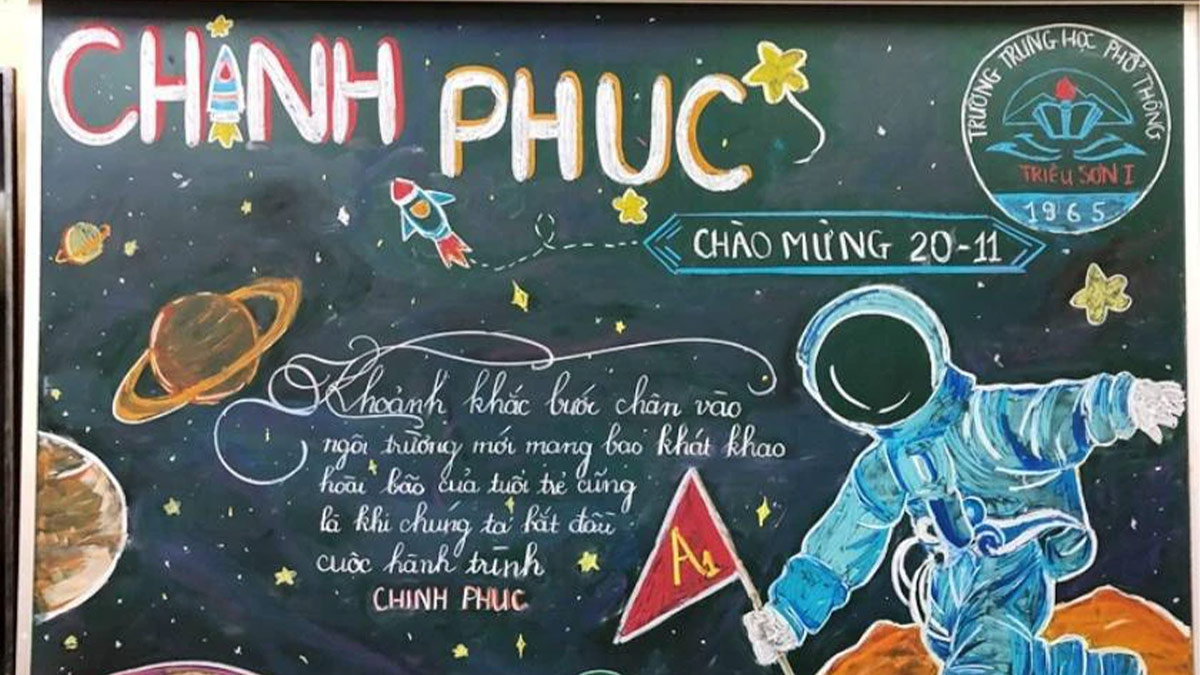 CHINH PHỤC
TRƯỜNG TRUNG HỌC PHỔ THÔNG
TRIỆU SƠN I
1965
CHÀO MỪNG 20-11
Khoảnh khắc bước chân vào
ngôi trường mới mang bao khát khao
hoài bão của tuổi trẻ cũng
là khi chúng ta bắt đầu
cuộc hành trình
CHINH PHỤC
A1